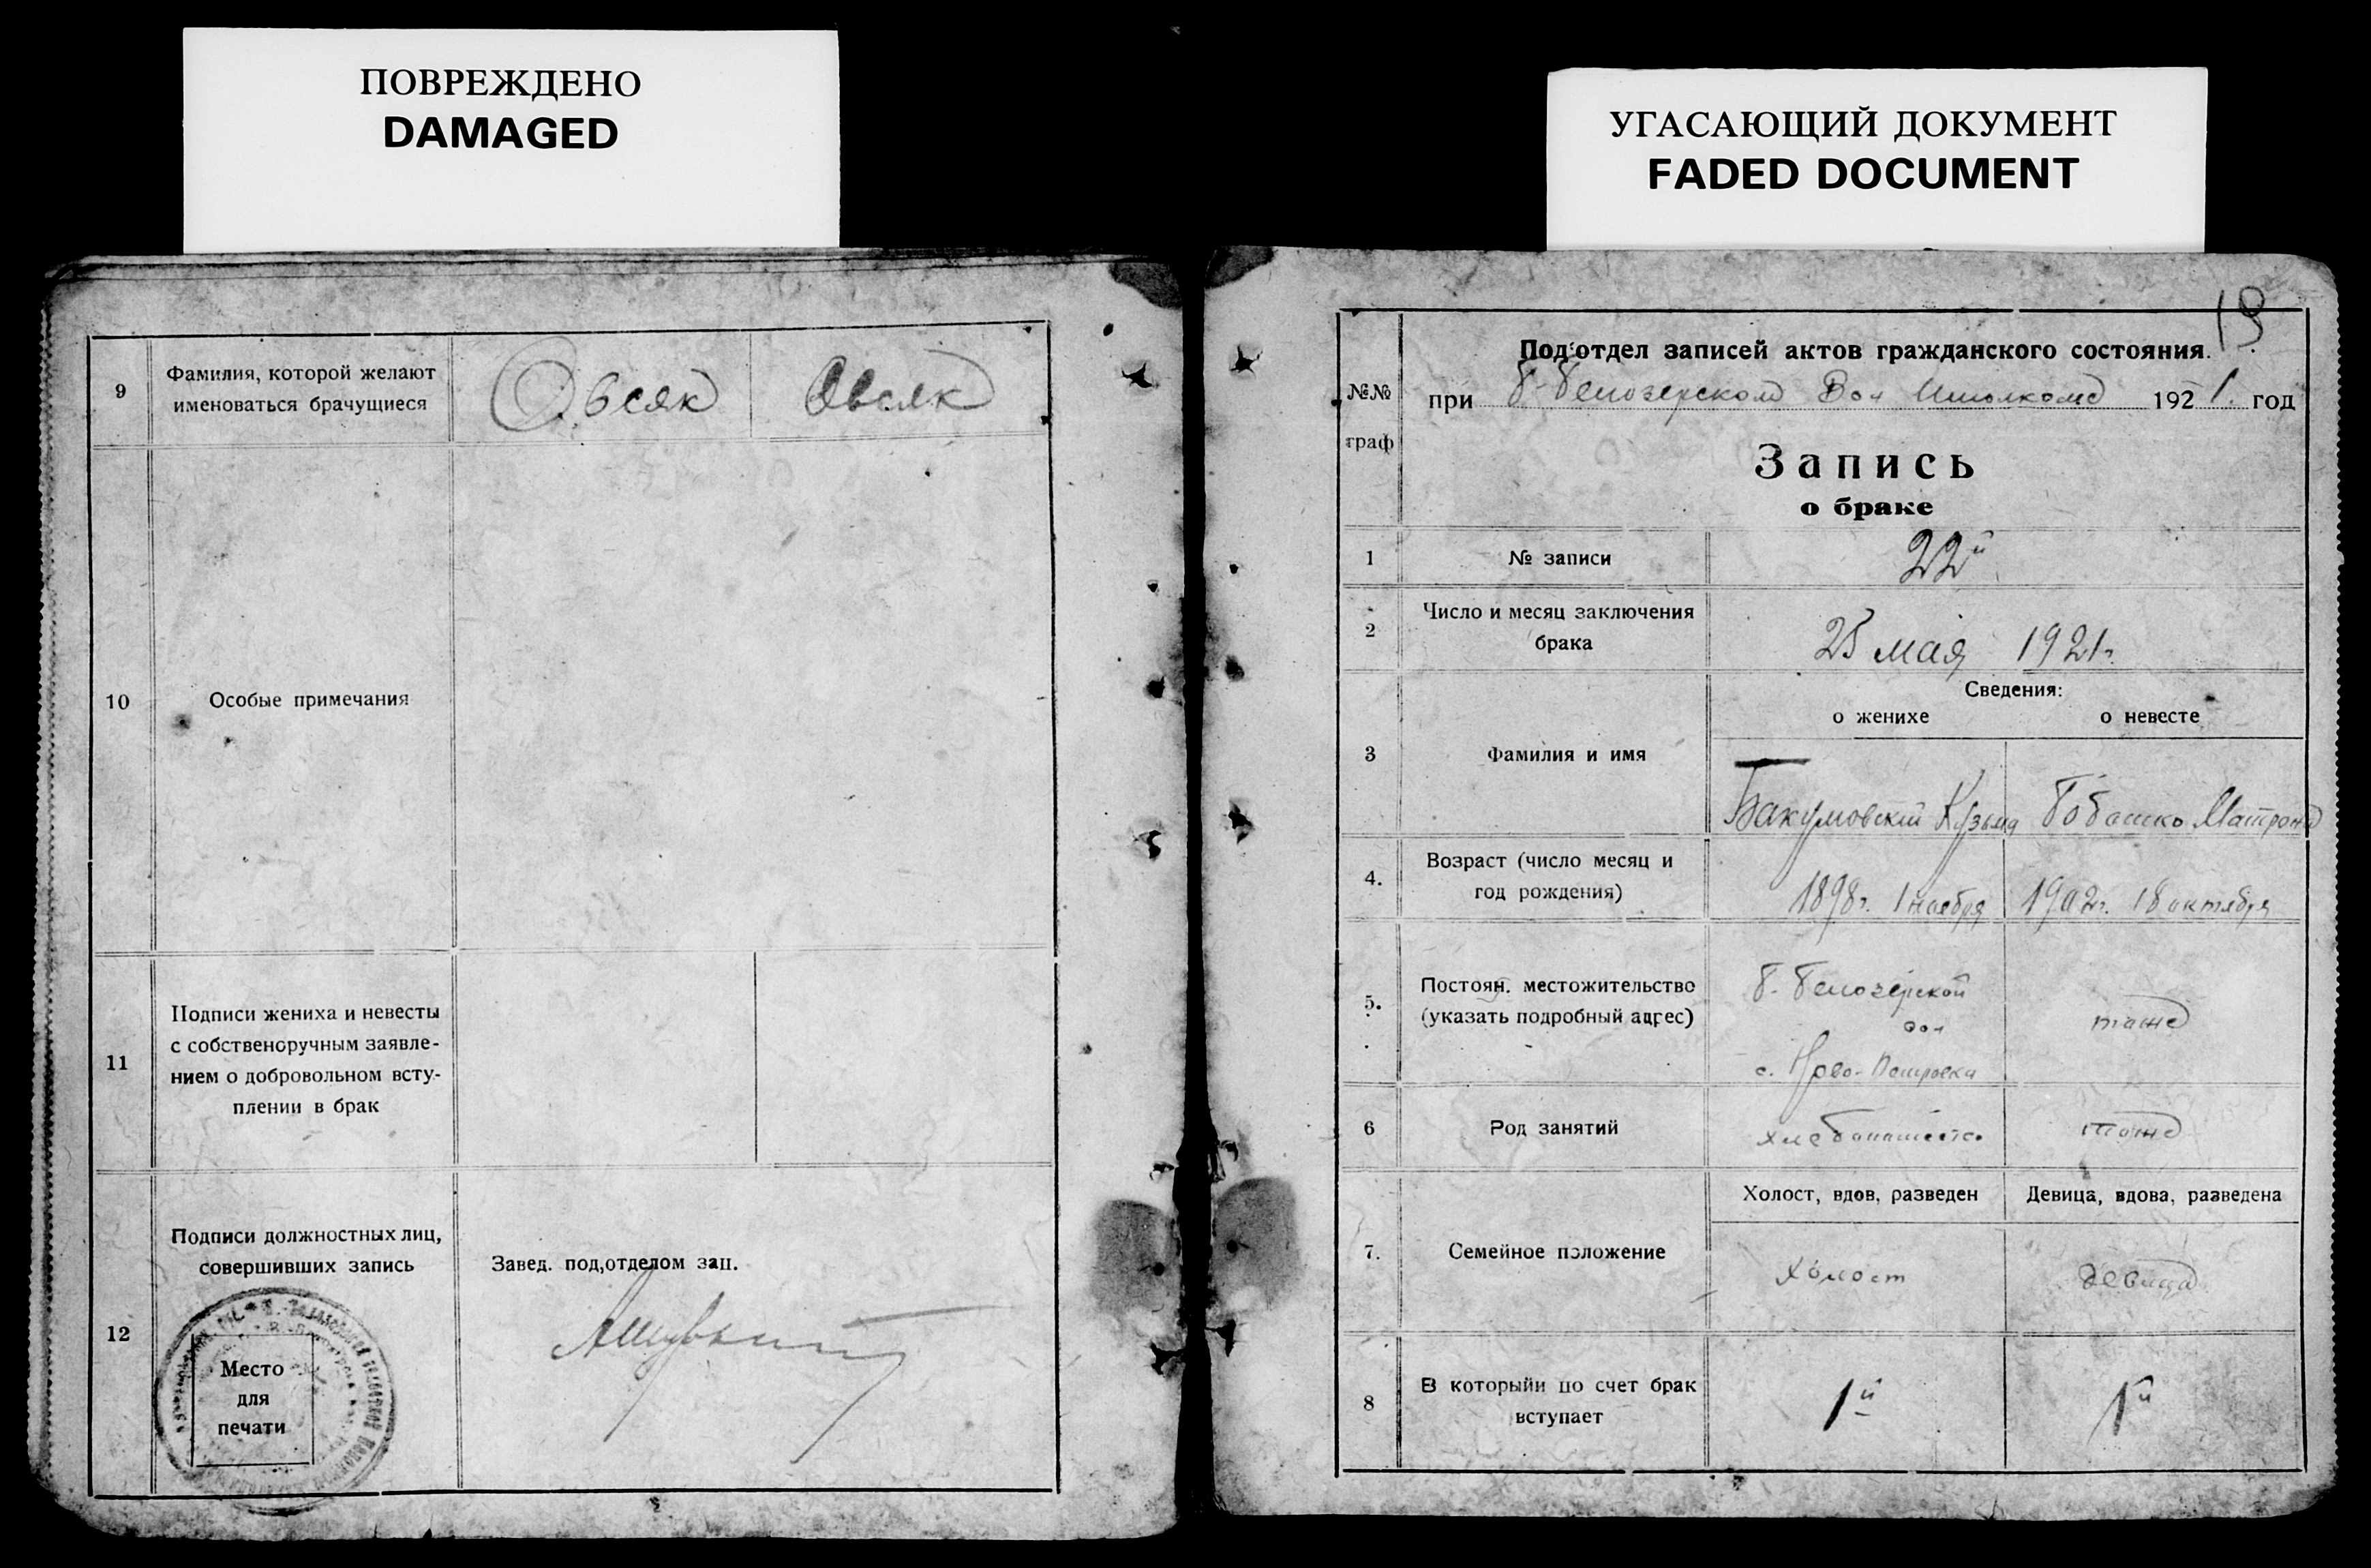 ПОВРЕЖДЕНО
DAMAGED
УГАСАЮЩИЙ ДОКУМЕНТ
FADED DOCUMENT
9
Фамилия, которой желают
именоваться брачущиеся
Овсяк
Овсяк
10
Особые примечания
11
Подписи жениха и невесты
с собственоручным заявле-
нием о добровольном всту-
плении в брак
12
Подписи должностных лиц,
совершивших запись
Место
для
печати
Завед. под,отделом зап.
19
№№
граф
Под'отдел записей актов гражданского состояния.
при Б-Белозерском Вол Исполкоме 1921. год
Запись
о браке
1
№ записи
22й
2
Число и месяц заключения
брака
25 мая 1921г.
3
Фамилия и имя
Сведения:
о женихе
о невесте
Бакумовский Кузьма
Бобошко Матрона
4.
Возраст (число месяц и
год рождения)
1898г. 1 ноября
1902г. 18 октября
5.
Постоян. местожительство
(указать подробный адрес)
Б-Белозерской
вол
с. Ново-Петровки
тоже
6
Род занятий
хлебопашество
тоже
7.
Семейное положение
Холост, вдов, разведен
Девица, вдова, разведена
Холост
девица
8
В которыйи по счет брак
вступает
1й
1й